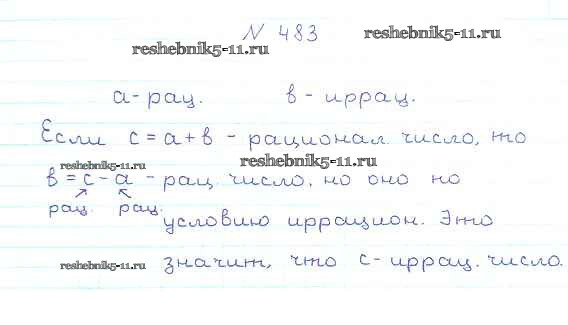 N 483
reshebnik5-11.ru reshebnik5-11.ru
а-рац. в - иррац.
Если с = а + в - рационал. число, то
reshebnik5-11.ru reshebnik5-11.ru
в = с - а - рац. число, но оно по
рац. рац.
условию иррацион. Это
reshebnik5-11.ru
значит, что с - иррац. число.